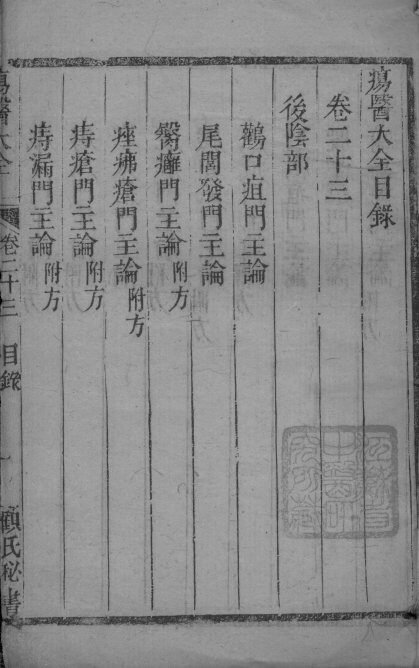 瘍醫大全目錄
卷二十三
後陰部
鸛口疽門主論
尾閭發門主論
臀癰門主論 附方
痤疿瘡門主論 附方
痔瘡門主論 附方
痔漏門主論 附方
瘍醫大全 卷二十三 目錄 一 顧氏秘書